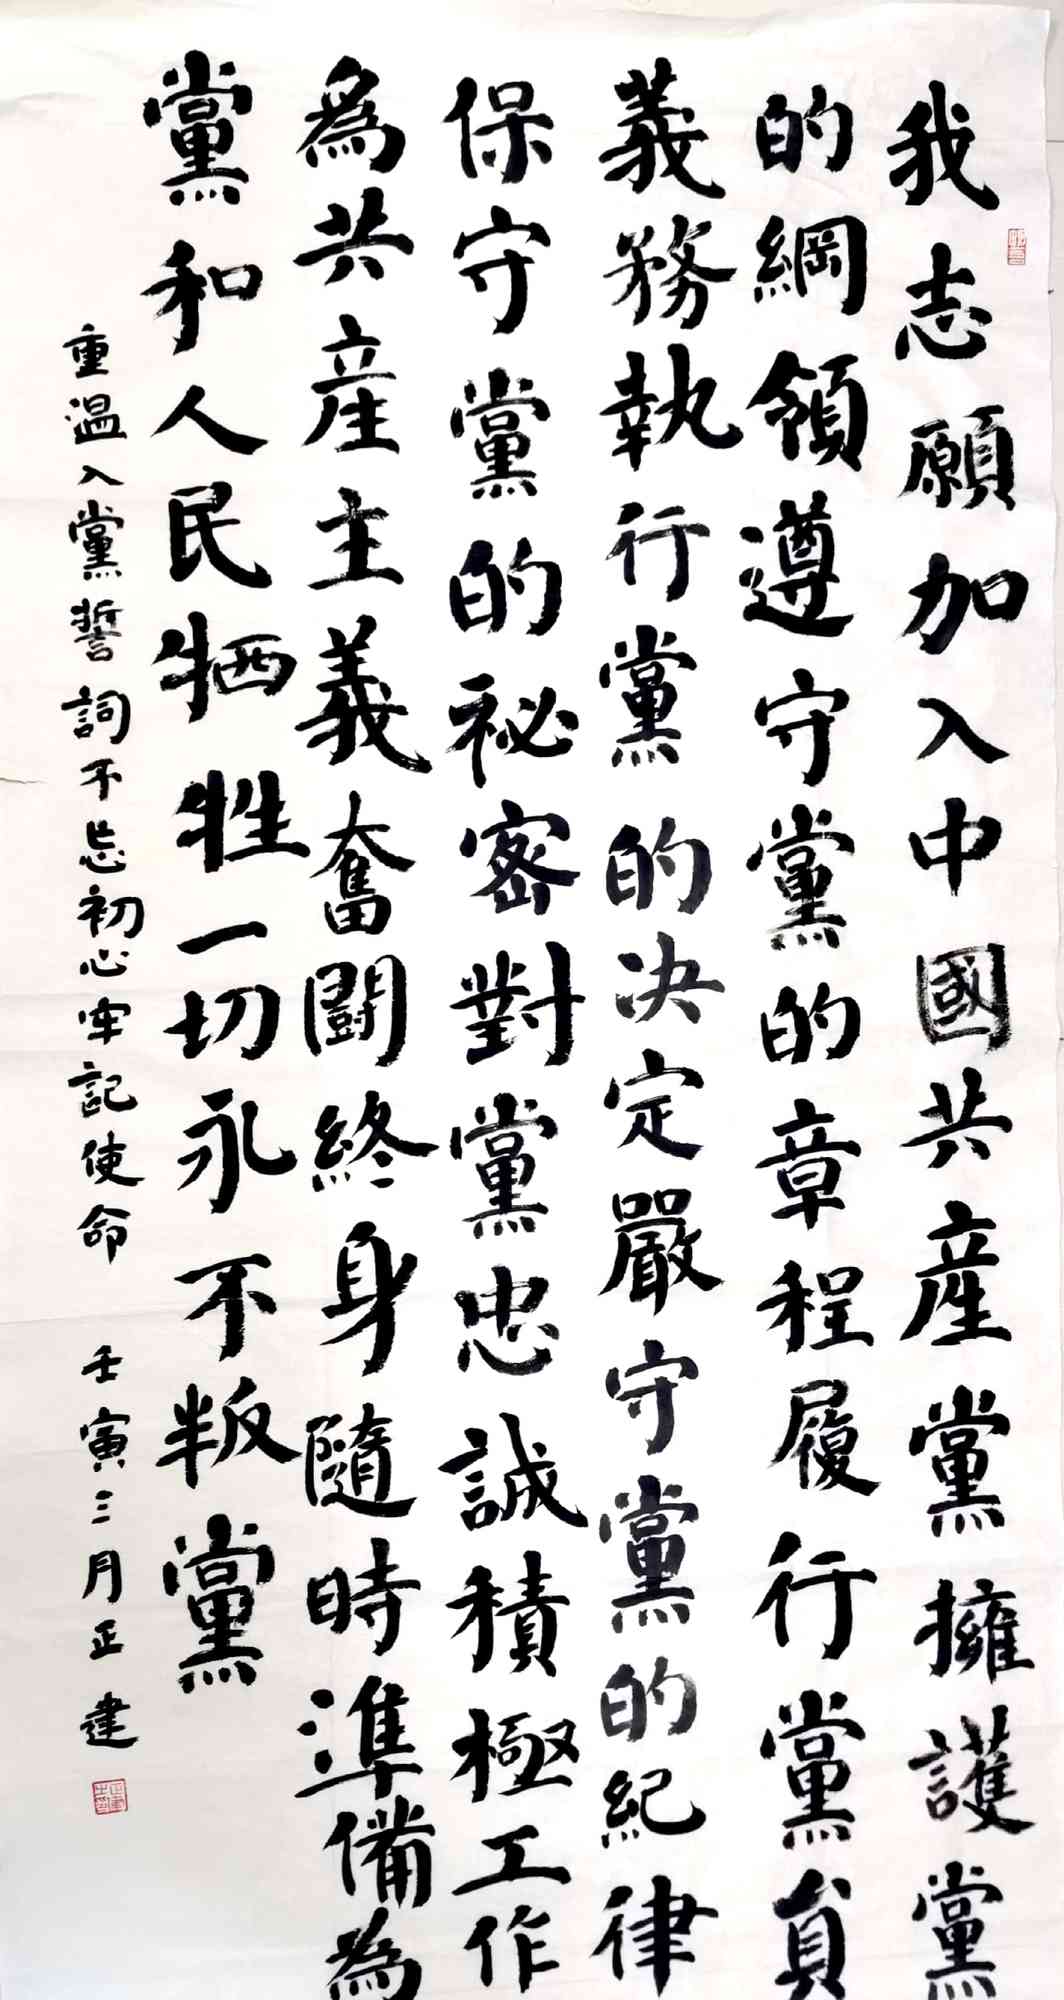 我志願加入中國共産黨擁護黨
的綱領遵守黨的章程履行黨員
義務執行黨的决定嚴守黨的紀律
保守黨的秘密對黨忠誠積極工作
為共産主義奮鬪終身隨時準備為
黨和人民牺牲一切永不叛黨
重温入黨誓詞不忘初心牢記使命 壬寅三月正建